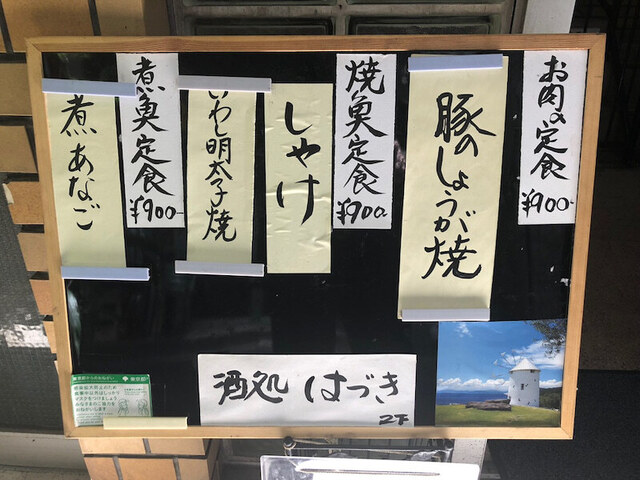 お肉の定食
¥900
豚のしょうが焼
焼魚定食
¥900
しゃけ
いわし明太子焼
煮魚定食
¥900
煮あなご
酒処 はづき
2F